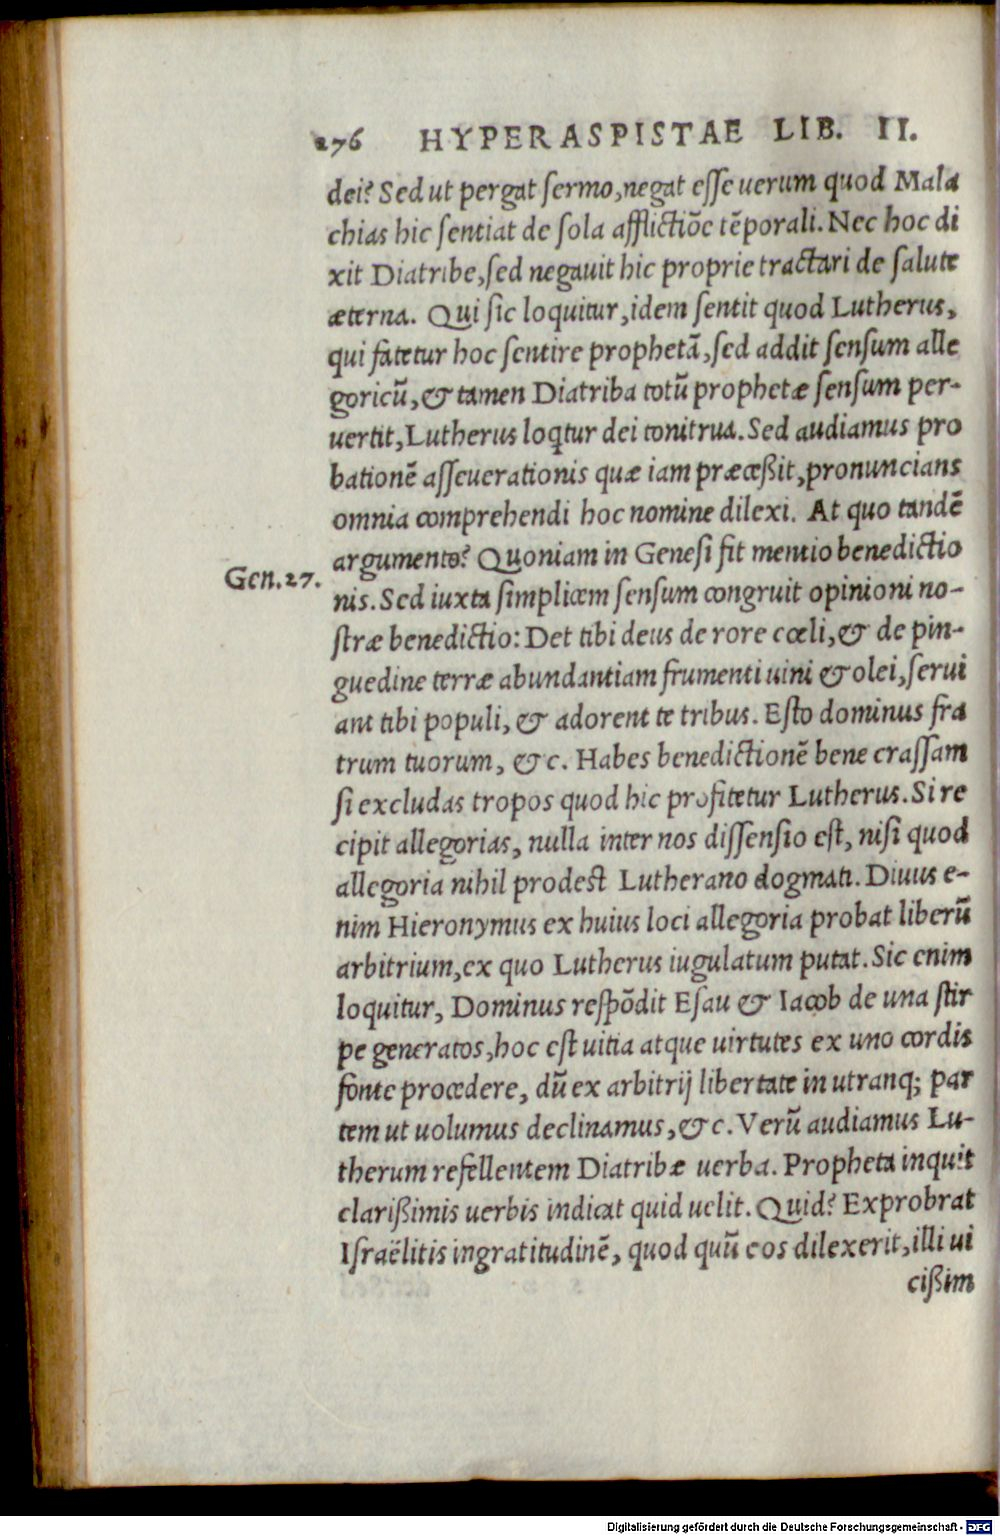 276 HYPERASPISTAE LIB. II.
dei? Sed ut pergat sermo, negat esse uerum quod Mala
chias hic sentiat de sola afflictiõe tẽporali. Nec hoc di
xit Diatribe, sed negauit hic proprie tractari de salute
æterna. Qui sic loquitur, idem sentit quod Lutherus,
qui fatetur hoc sentire prophetã, sed addit sensum alle
goricũ, & tamen Diatriba totũ prophetæ sensum per-
uertit, Lutherus loqtur dei tonitrua. Sed audiamus pro
bationẽ asseuerationis quæ iam præceßit, pronuncians
omnia comprehendi hoc nomine dilexi. At quo tandẽ
argumento? Quoniam in Genesi fit mentio benedictio
Gen. 27.
nis. Sed iuxta simplicem sensum congruit opinioni no-
stræ benedictio: Det tibi deus de rore cœli, & de pin-
guedine terræ abundantiam frumenti uini & olei, serui
ant tibi populi, & adorent te tribus. Esto dominus fra
trum tuorum, &c. Habes benedictionẽ bene crassam
si excludas tropos quod hic profitetur Lutherus. Si re
cipit allegorias, nulla inter nos dissensio est, nisi quod
allegoria nihil prodest Lutherano dogmati. Diuus e-
nim Hieronymus ex huius loci allegoria probat liberũ
arbitrium, ex quo Lutherus iugulatum putat. Sic enim
loquitur, Dominus respõdit Esau & Iacob de una stir
pe generatos, hoc est uitia atque uirtutes ex uno cordis
fonte procedere, dũ ex arbitrij libertate in utranq; par
tem ut uolumus declinamus, &c. Verũ audiamus Lu-
therum refellentem Diatribæ uerba. Propheta inquit
clarißimis uerbis indicat quid uelit. Quid? Exprobrat
Israëlitis ingratitudinẽ, quod quũ eos dilexerit, illi ui
cißim
Digitalisierung gefördert durch die Deutsche Forschungsgemeinschaft - DFG